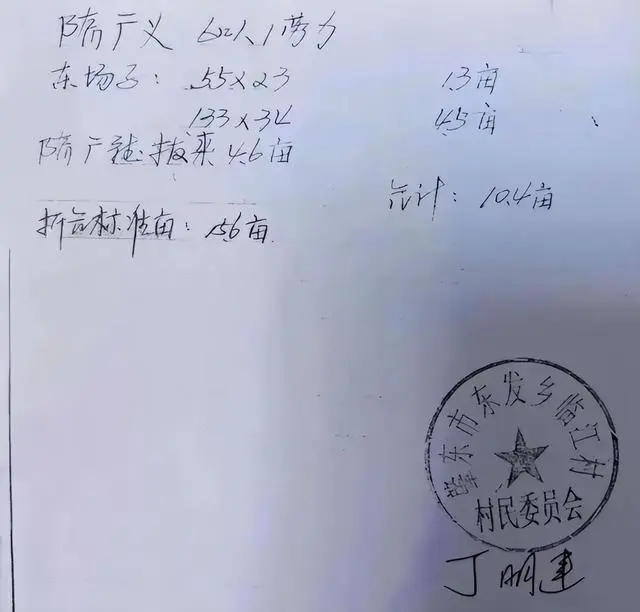 隋广义 6口人1劳力
东场子: 55×23 1.3亩
133×34 4.5亩
隋广 拨来4.6亩
总计: 10.4亩
折合标准亩: 15.6亩
肇东市东发乡临江村
村民委员会
丁明建